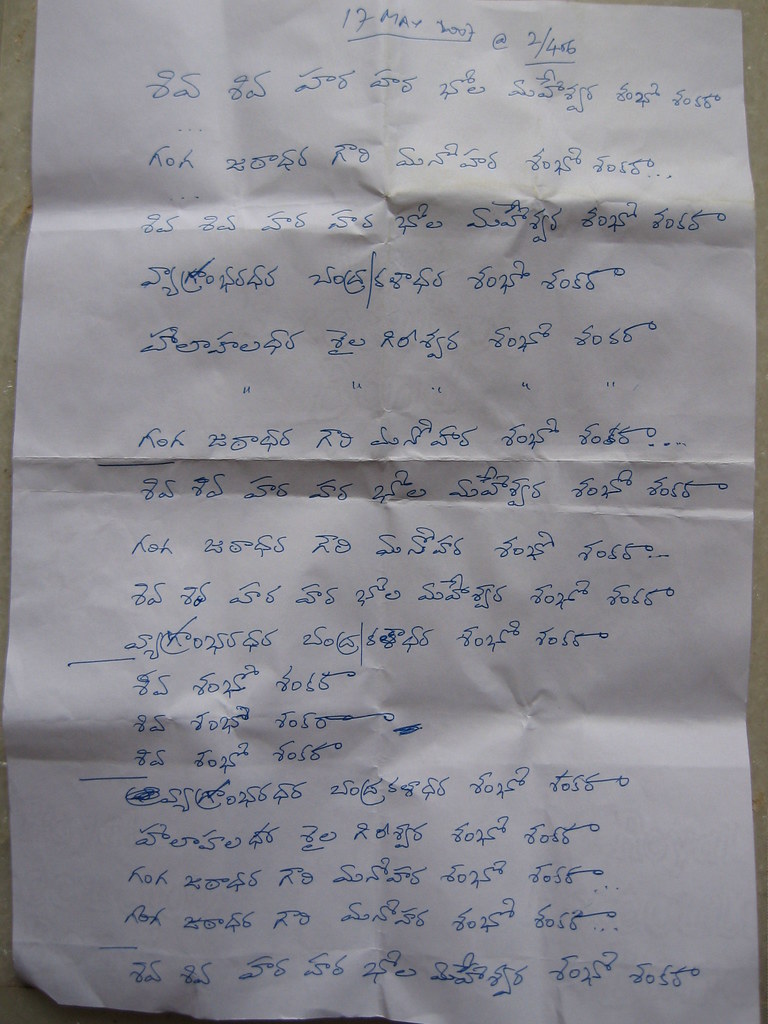 17 MAY 2007 @ 2/406
శివ శివ హర హర భోల మహేశ్వర శంభో శంకరా
...
గంగ జఠాధర గౌరి మనోహర శంభో శంకరా...
...
శివ శివ హర హర భోల మహేశ్వర శంభో శంకరా
వ్యాగ్రాంభరధర చంద్ర/కళాధర శంభో శంకరా
హాలాహలధర శైల గిరీశ్వర శంభో శంకరా
" " " " "
గంగ జఠాధర గౌరి మనోహర శంభో శంకరా...
శివ శివ హర హర భోల మహేశ్వర శంభో శంకరా
గంగ జఠాధర గౌరి మనోహర శంభో శంకరా...
శివ శివ హర హర భోల మహేశ్వర శంభో శంకరా
వ్యాగ్రాంభరధర చంద్ర/కళాధర శంభో శంకరా
శివ శంభో శంకరా
శివ శంభో శంకరా
శివ శంభో శంకరా
వ్యాగ్రాంభరధర చంద్రకళాధర శంభో శంకరా
హాలాహలధర శైల గిరీశ్వర శంభో శంకరా
గంగ జఠాధర గౌరి మనోహర శంభో శంకరా...
గంగ జఠాధర గౌరి మనోహర శంభో శంకరా...
శివ శివ హర హర భోల మహేశ్వర శంభో శంకరా